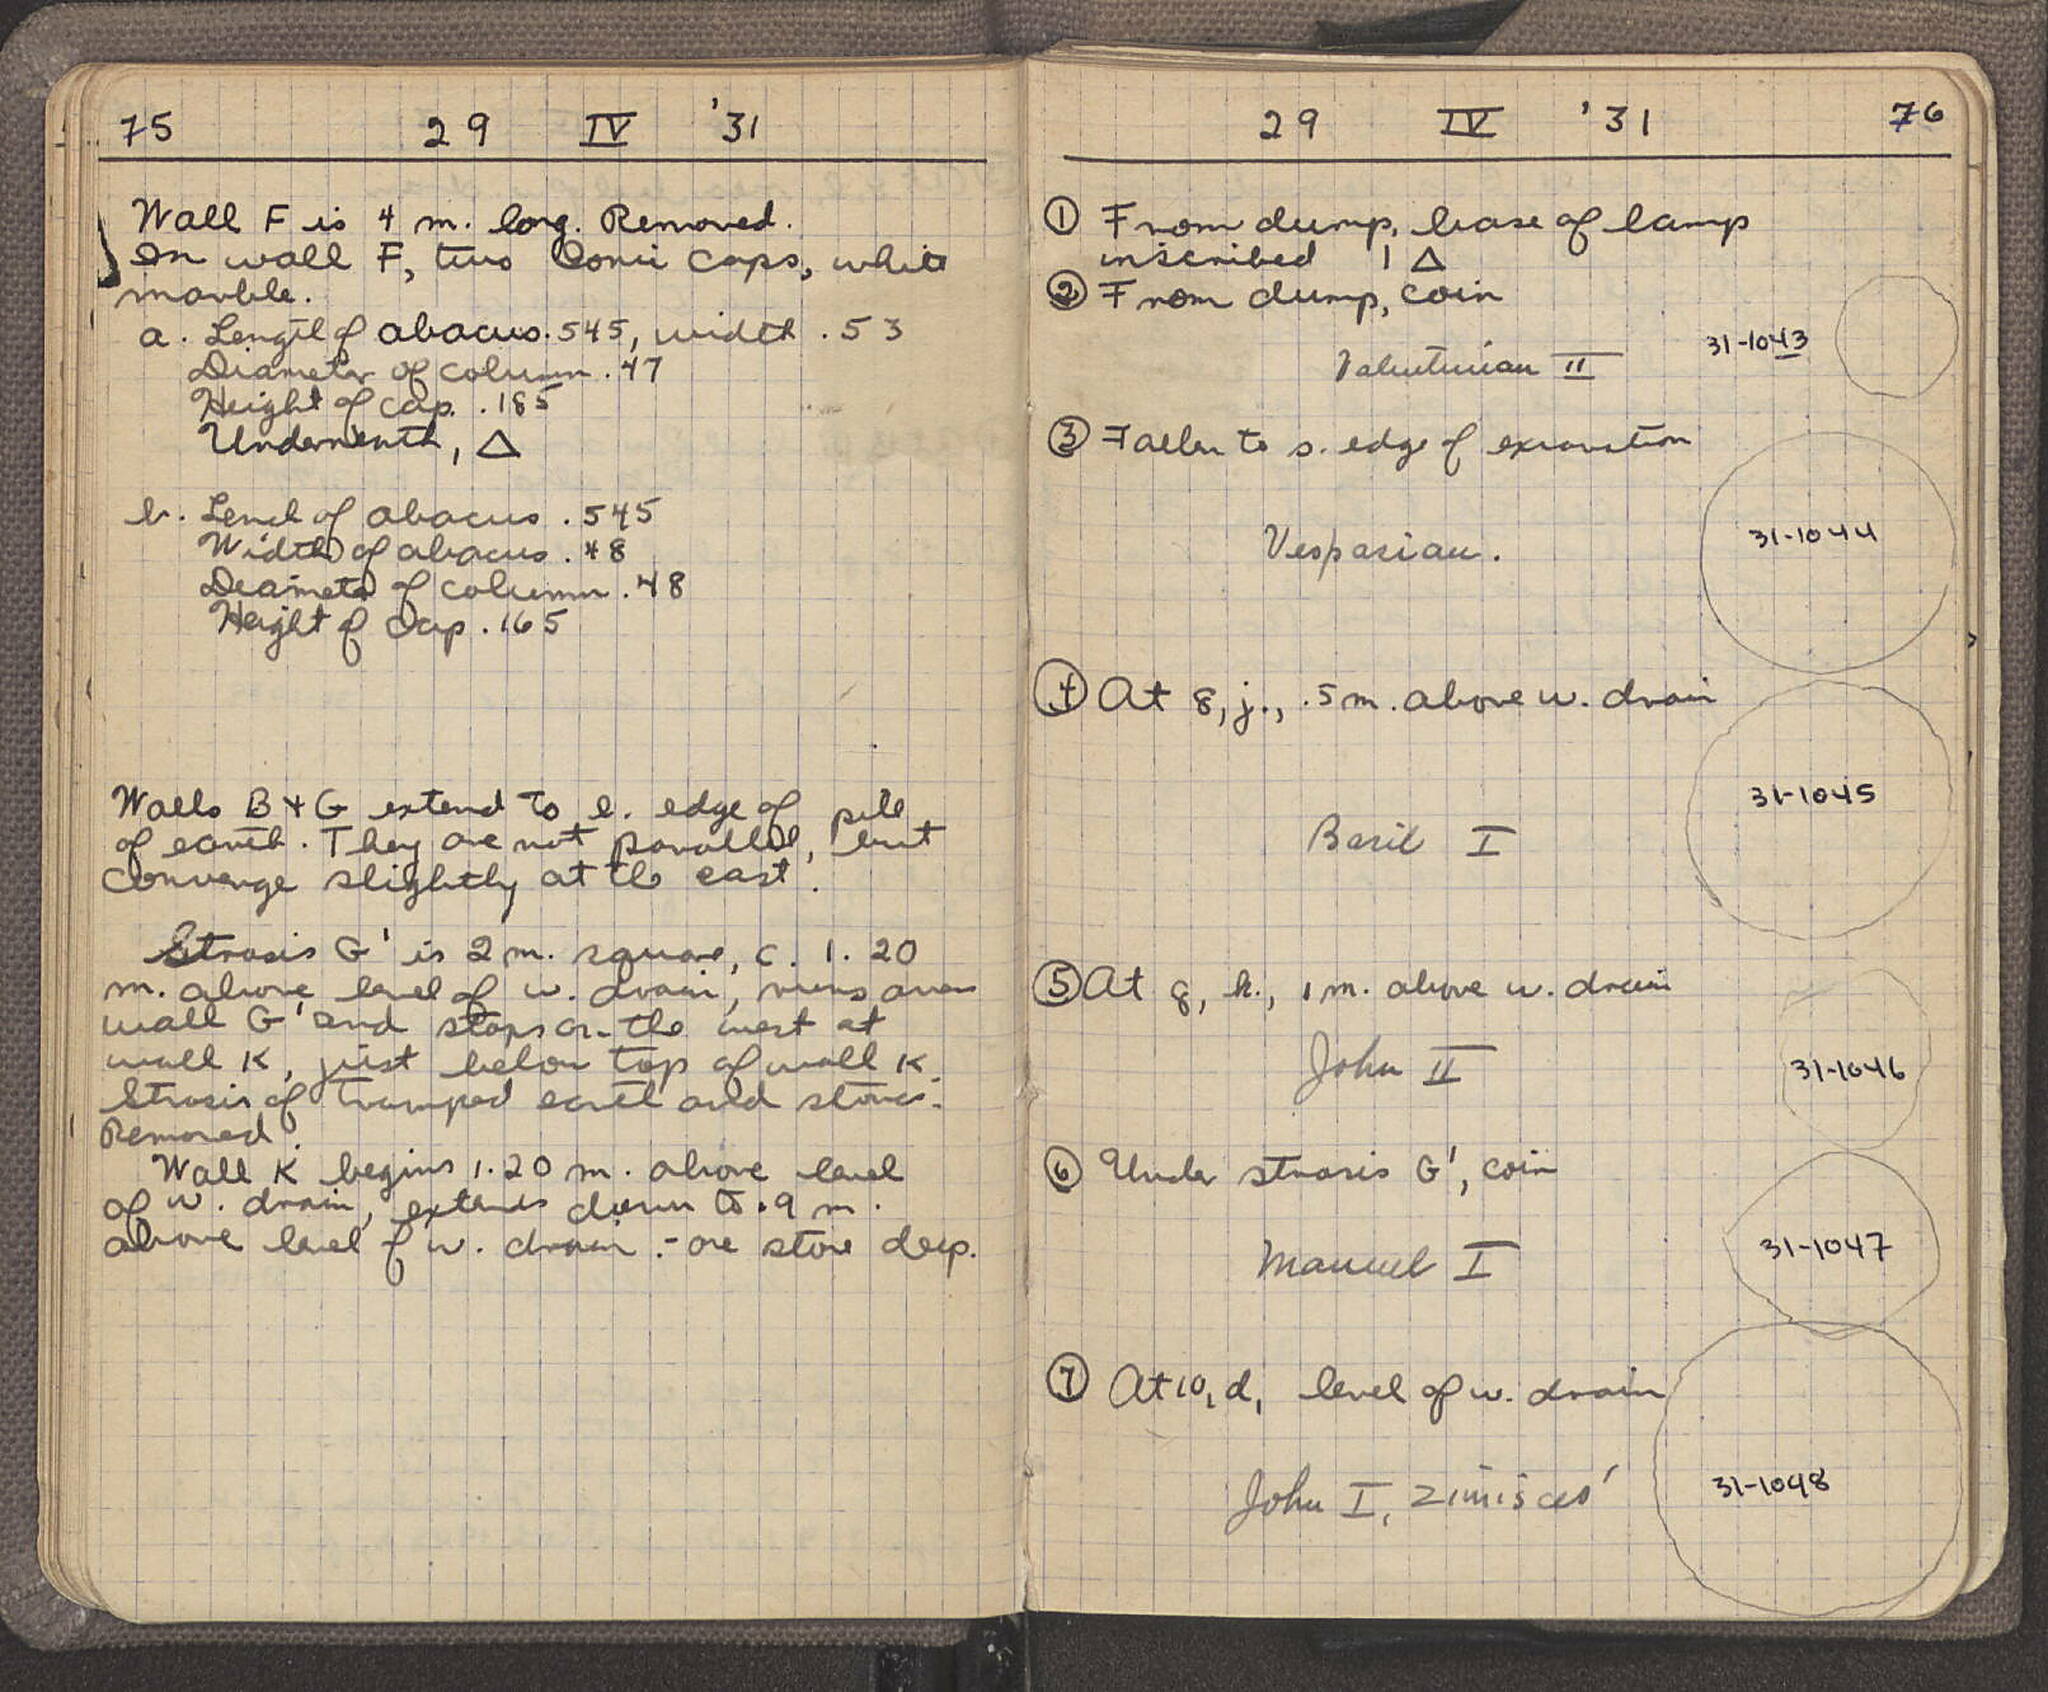 75 29 IV '31
Wall F is 4 m. long. Removed.
In wall F, two Doric caps, white
marble.
a. Length of abacus .545, width .53
Diameter of column .47
Height of cap. .185
Underneath, Δ
b. Length of abacus .545
Width of abacus .48
Diameter of column .48
Height of cap .165
Walls B + G extend to e. edge of pile
of earth. They are not parallel, but
converge slightly at the east.
Strosis G' is 2 m. square, c. 1.20
m. above level of w. drain, runs over
wall G' and stops on the west at
wall K, just below top of wall K.
Strosis of tramped earth and stones.
Removed.
Wall K begins 1.20 m. above level
of w. drain, extends down to .9 m.
above level of w. drain - one stone deep.
29 IV '31 76
① From dump, base of lamp
inscribed | Δ
② From dump, coin
31-1043
Valentinian II
③ Fallen to s. edge of excavation
31-1044
Vespasian.
④ At 8, j., .5 m. above w. drain
31-1045
Basil I
⑤ At 8, k., 1 m. above w. drain
John II
31-1046
⑥ Under strosis G', coin
31-1047
Manuel I
⑦ At 10, d, level of w. drain
31-1048
John I, Zimisces